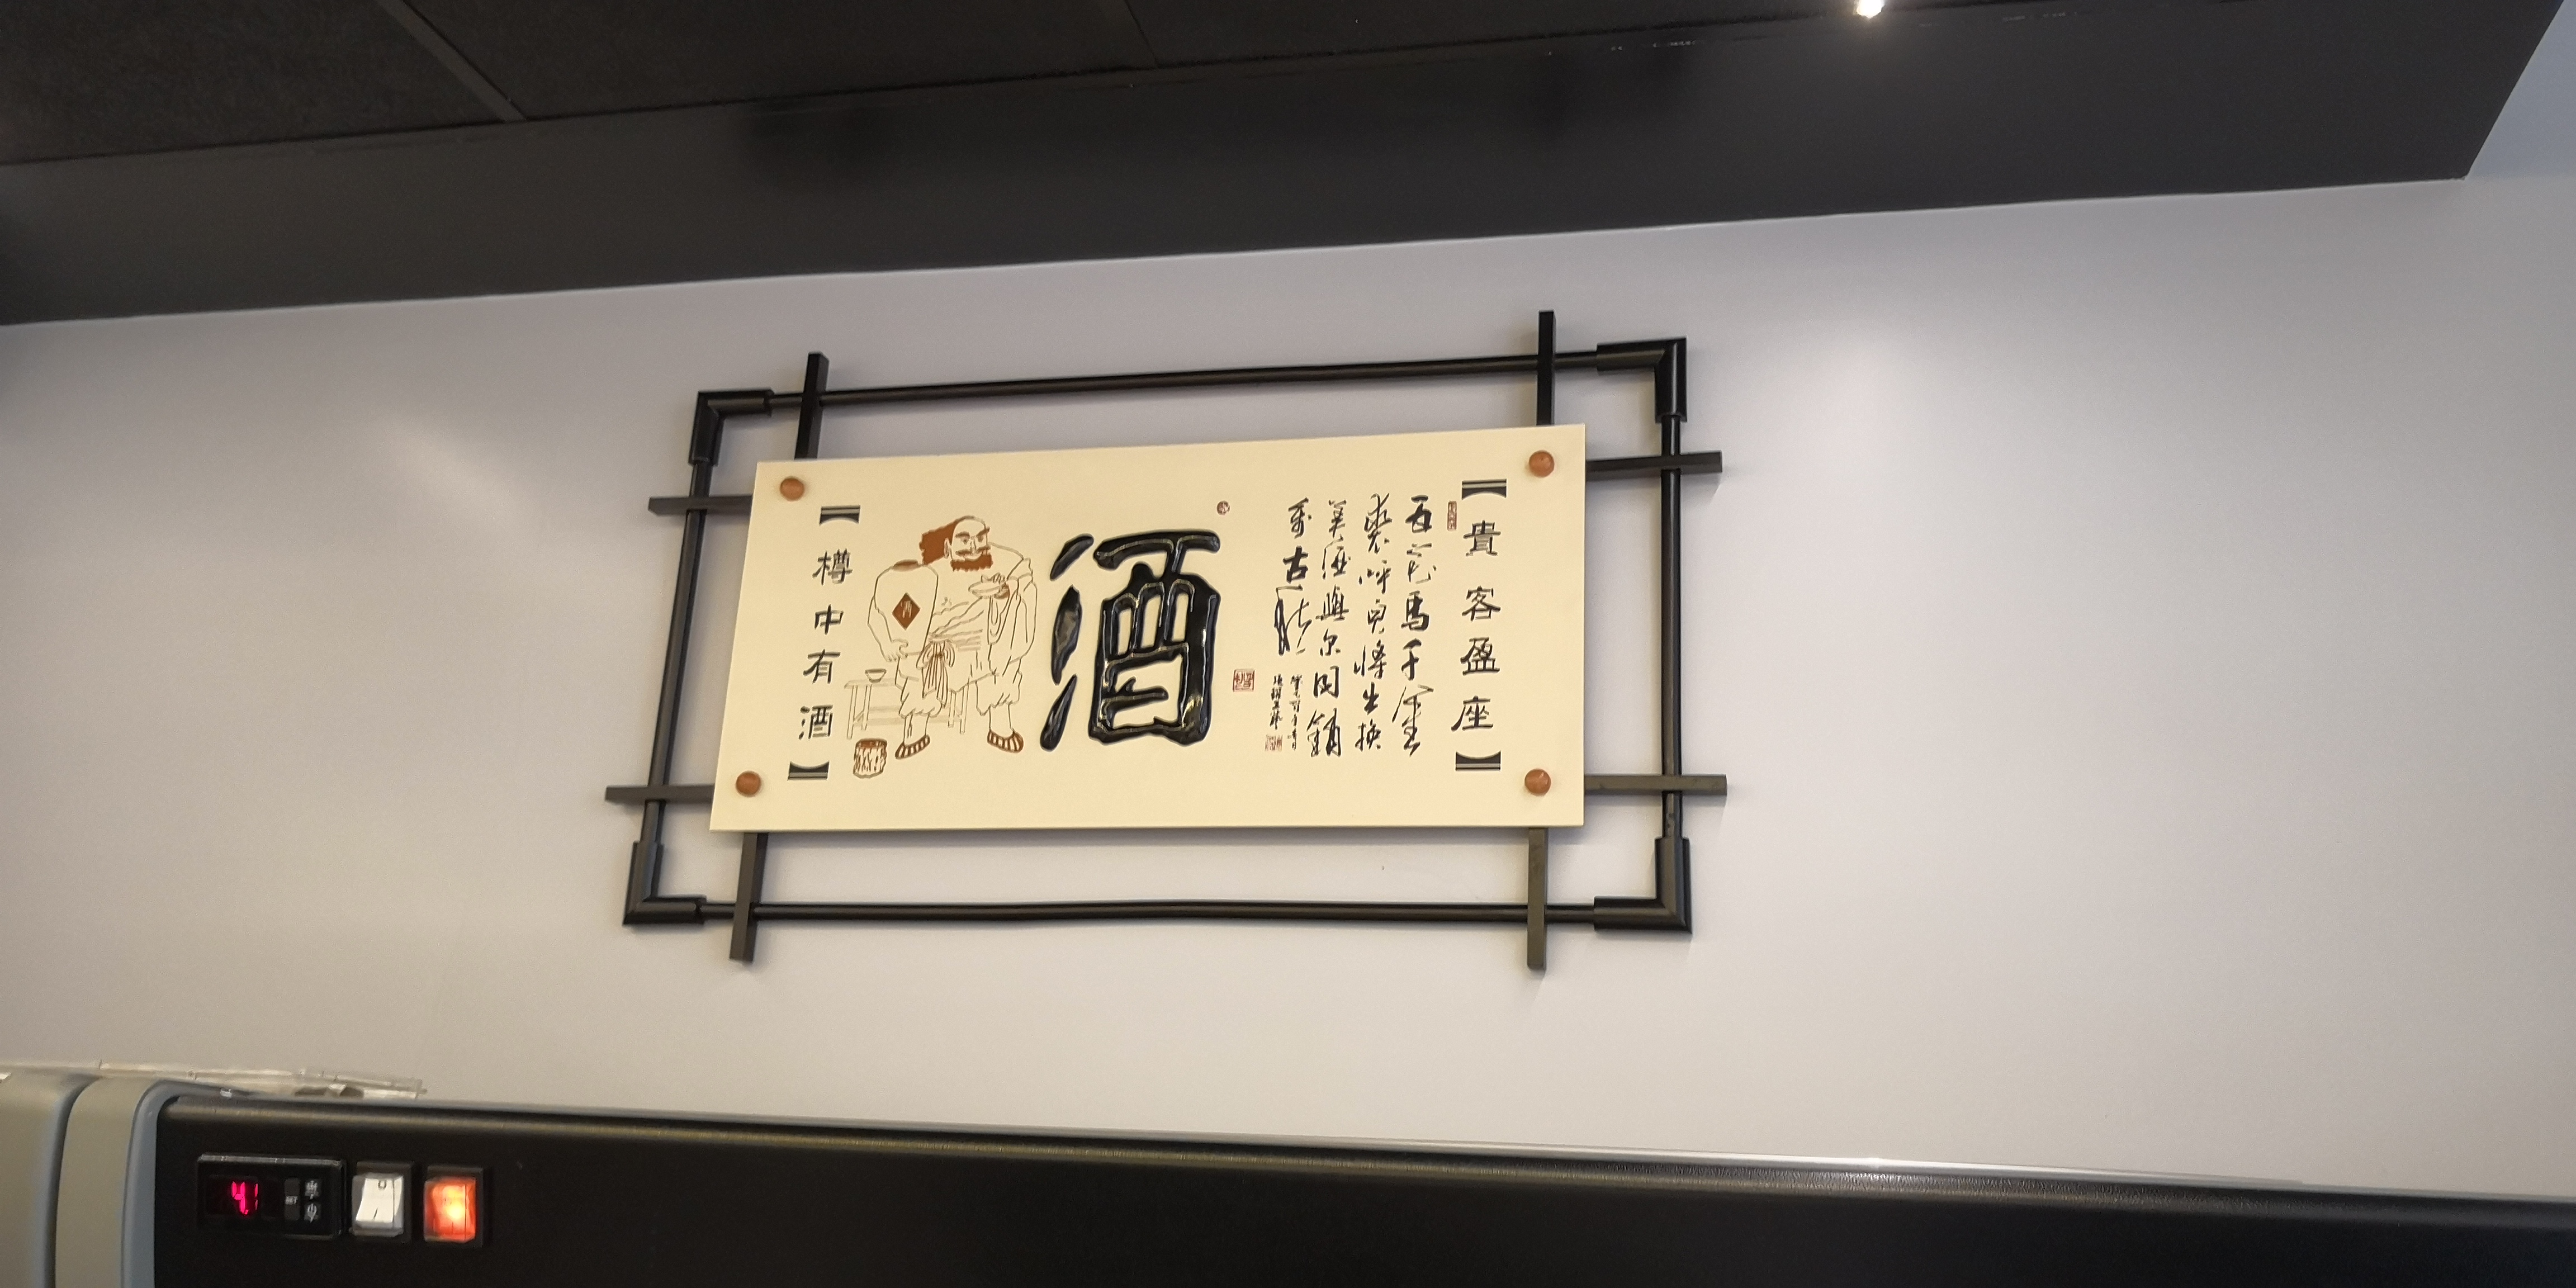 貴客盈座
五花馬千金
裘呼兒將出換
美酒與尔同銷
萬古愁
酒
酒
樽中有酒
4.1
SET